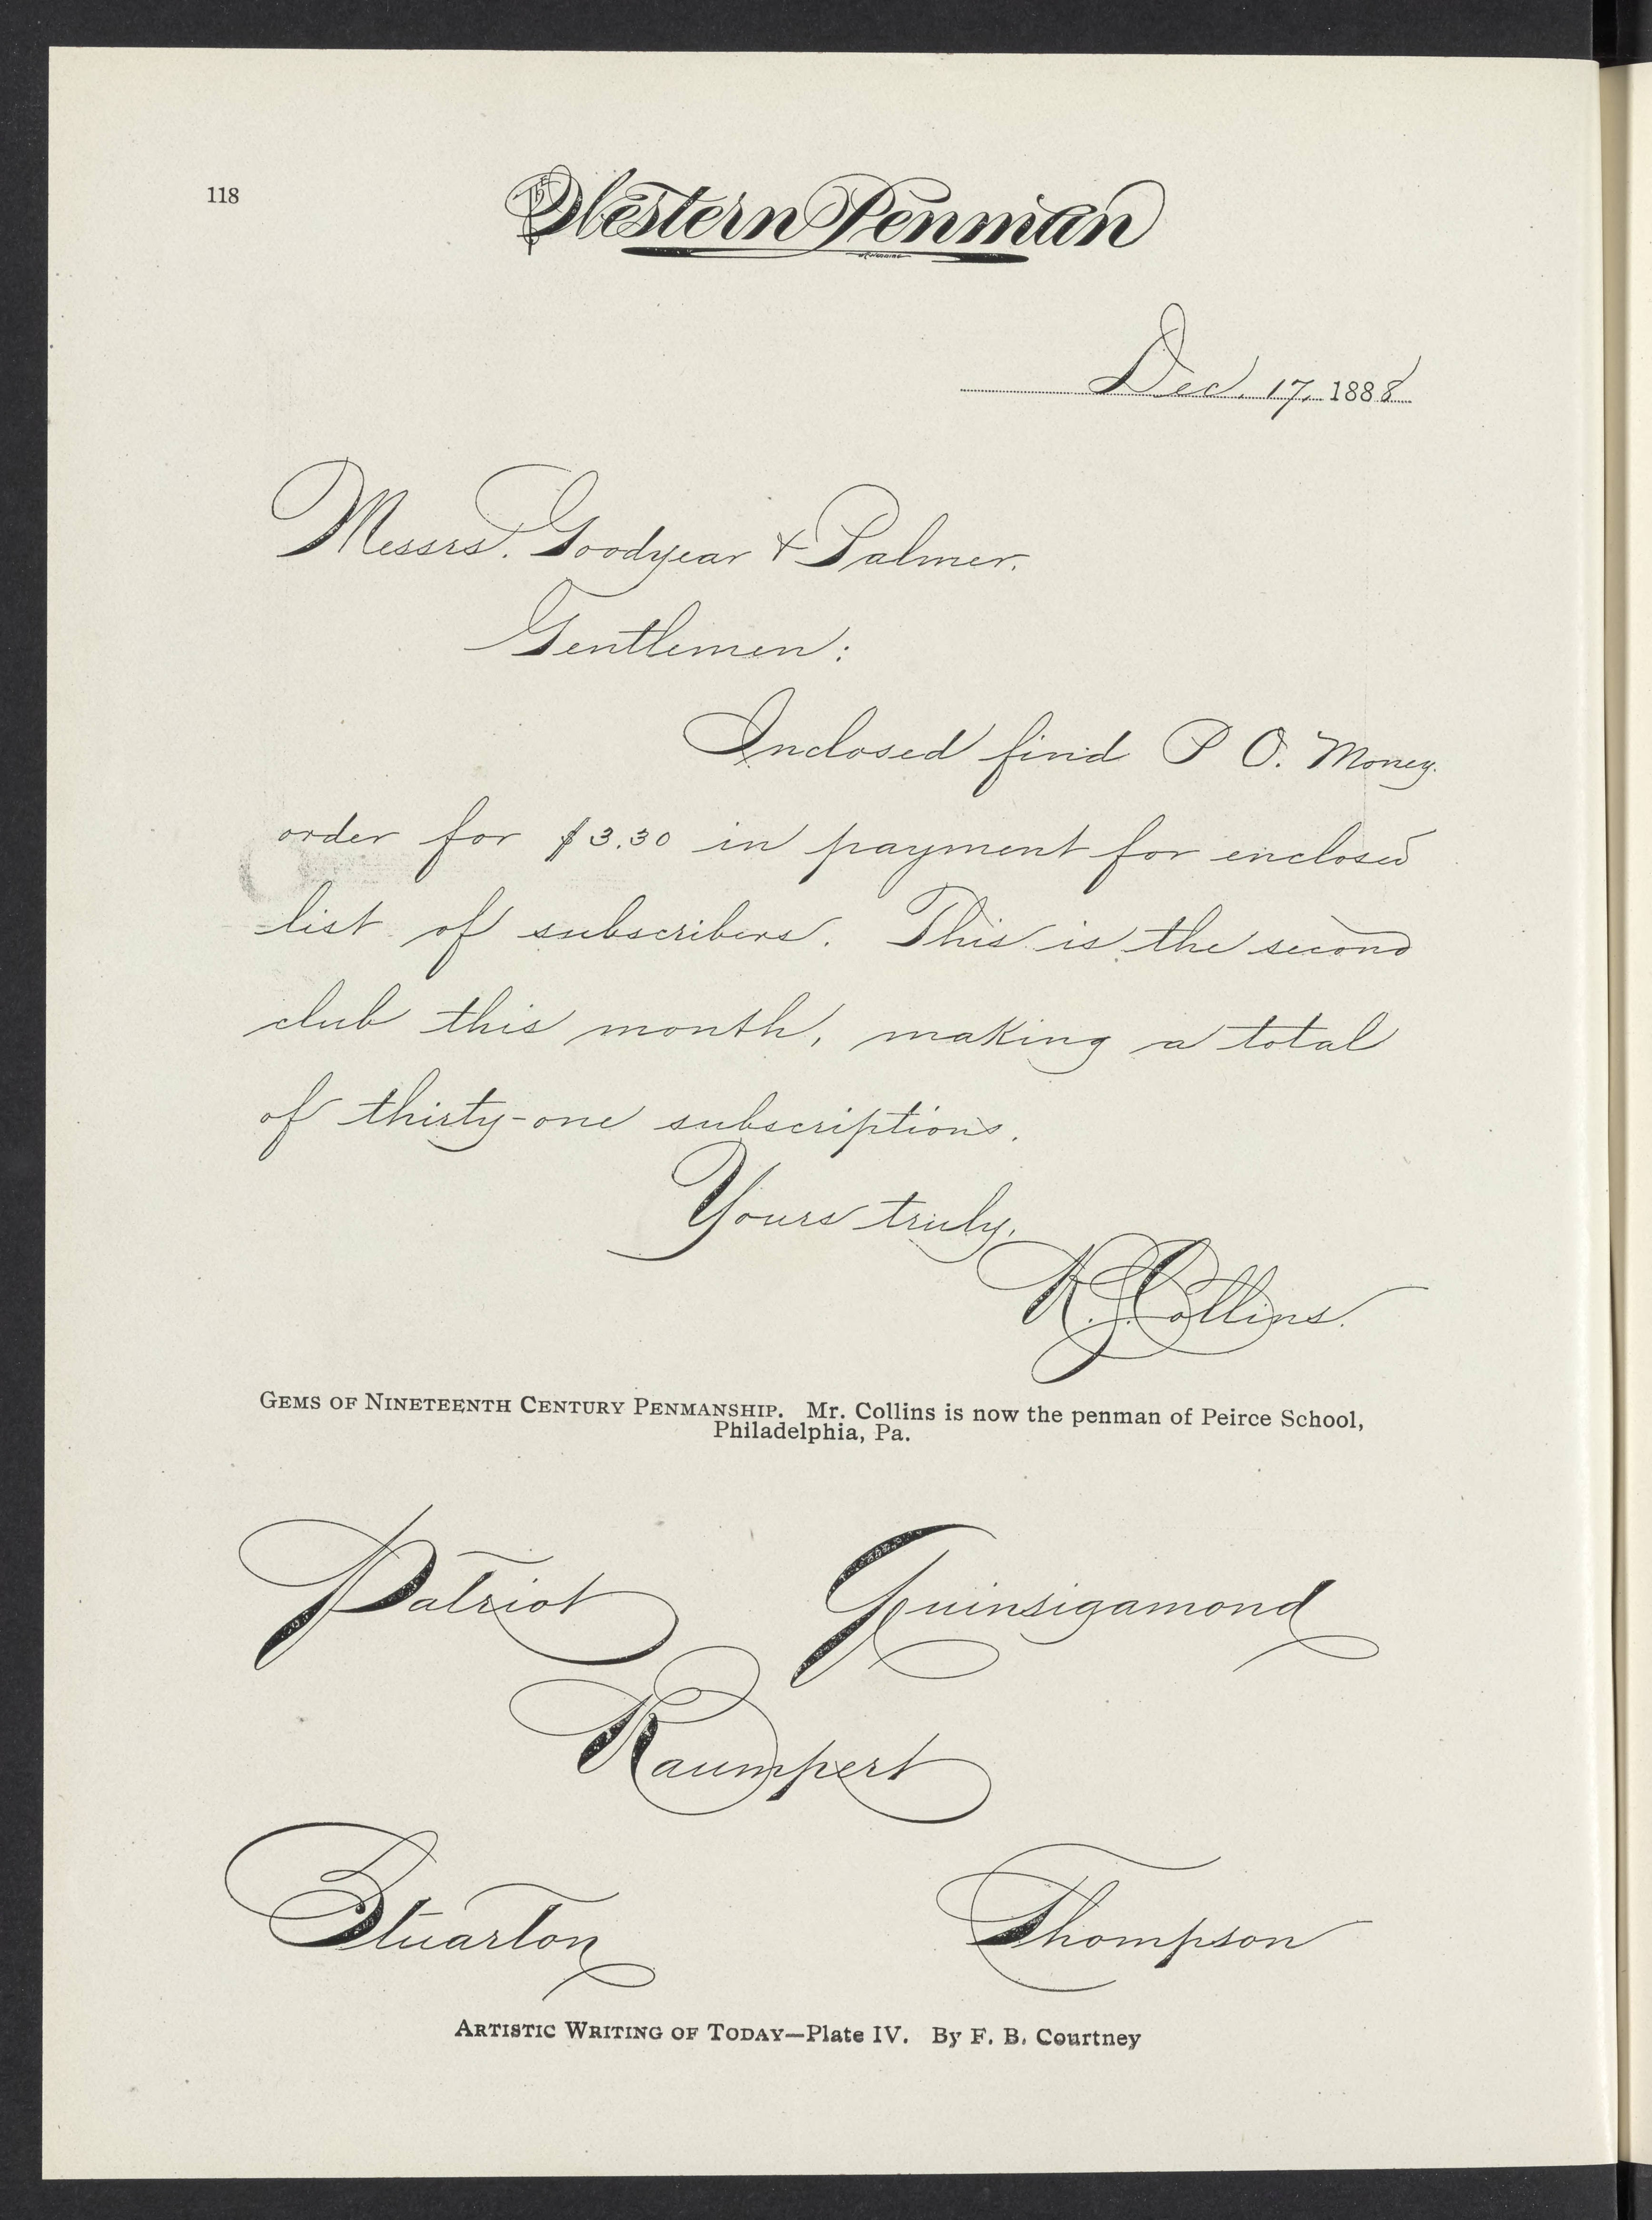 118
The Western Penman
Dec. 17, 1888
Messrs. Goodyear & Palmer.
Gentlemen:
Inclosed find P O. Money
order for $3.30 in payment for enclosed
list of subscribers. This is the second
club this month, making a total
of thirty-one subscriptions.
Yours truly,
R. S. Collins.
GEMS OF NINETEENTH CENTURY PENMANSHIP. Mr. Collins is now the penman of Peirce School,
Philadelphia, Pa.
Patriot Quinsigamond
Raumpert
Stuarton Thompson
ARTISTIC WRITING OF TODAY—Plate IV. By F. B. Courtney